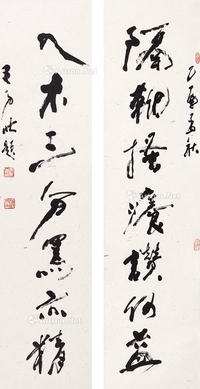 隔靴搔癢讚何益
乙酉秋
入木三分罵亦精
王乃壯題